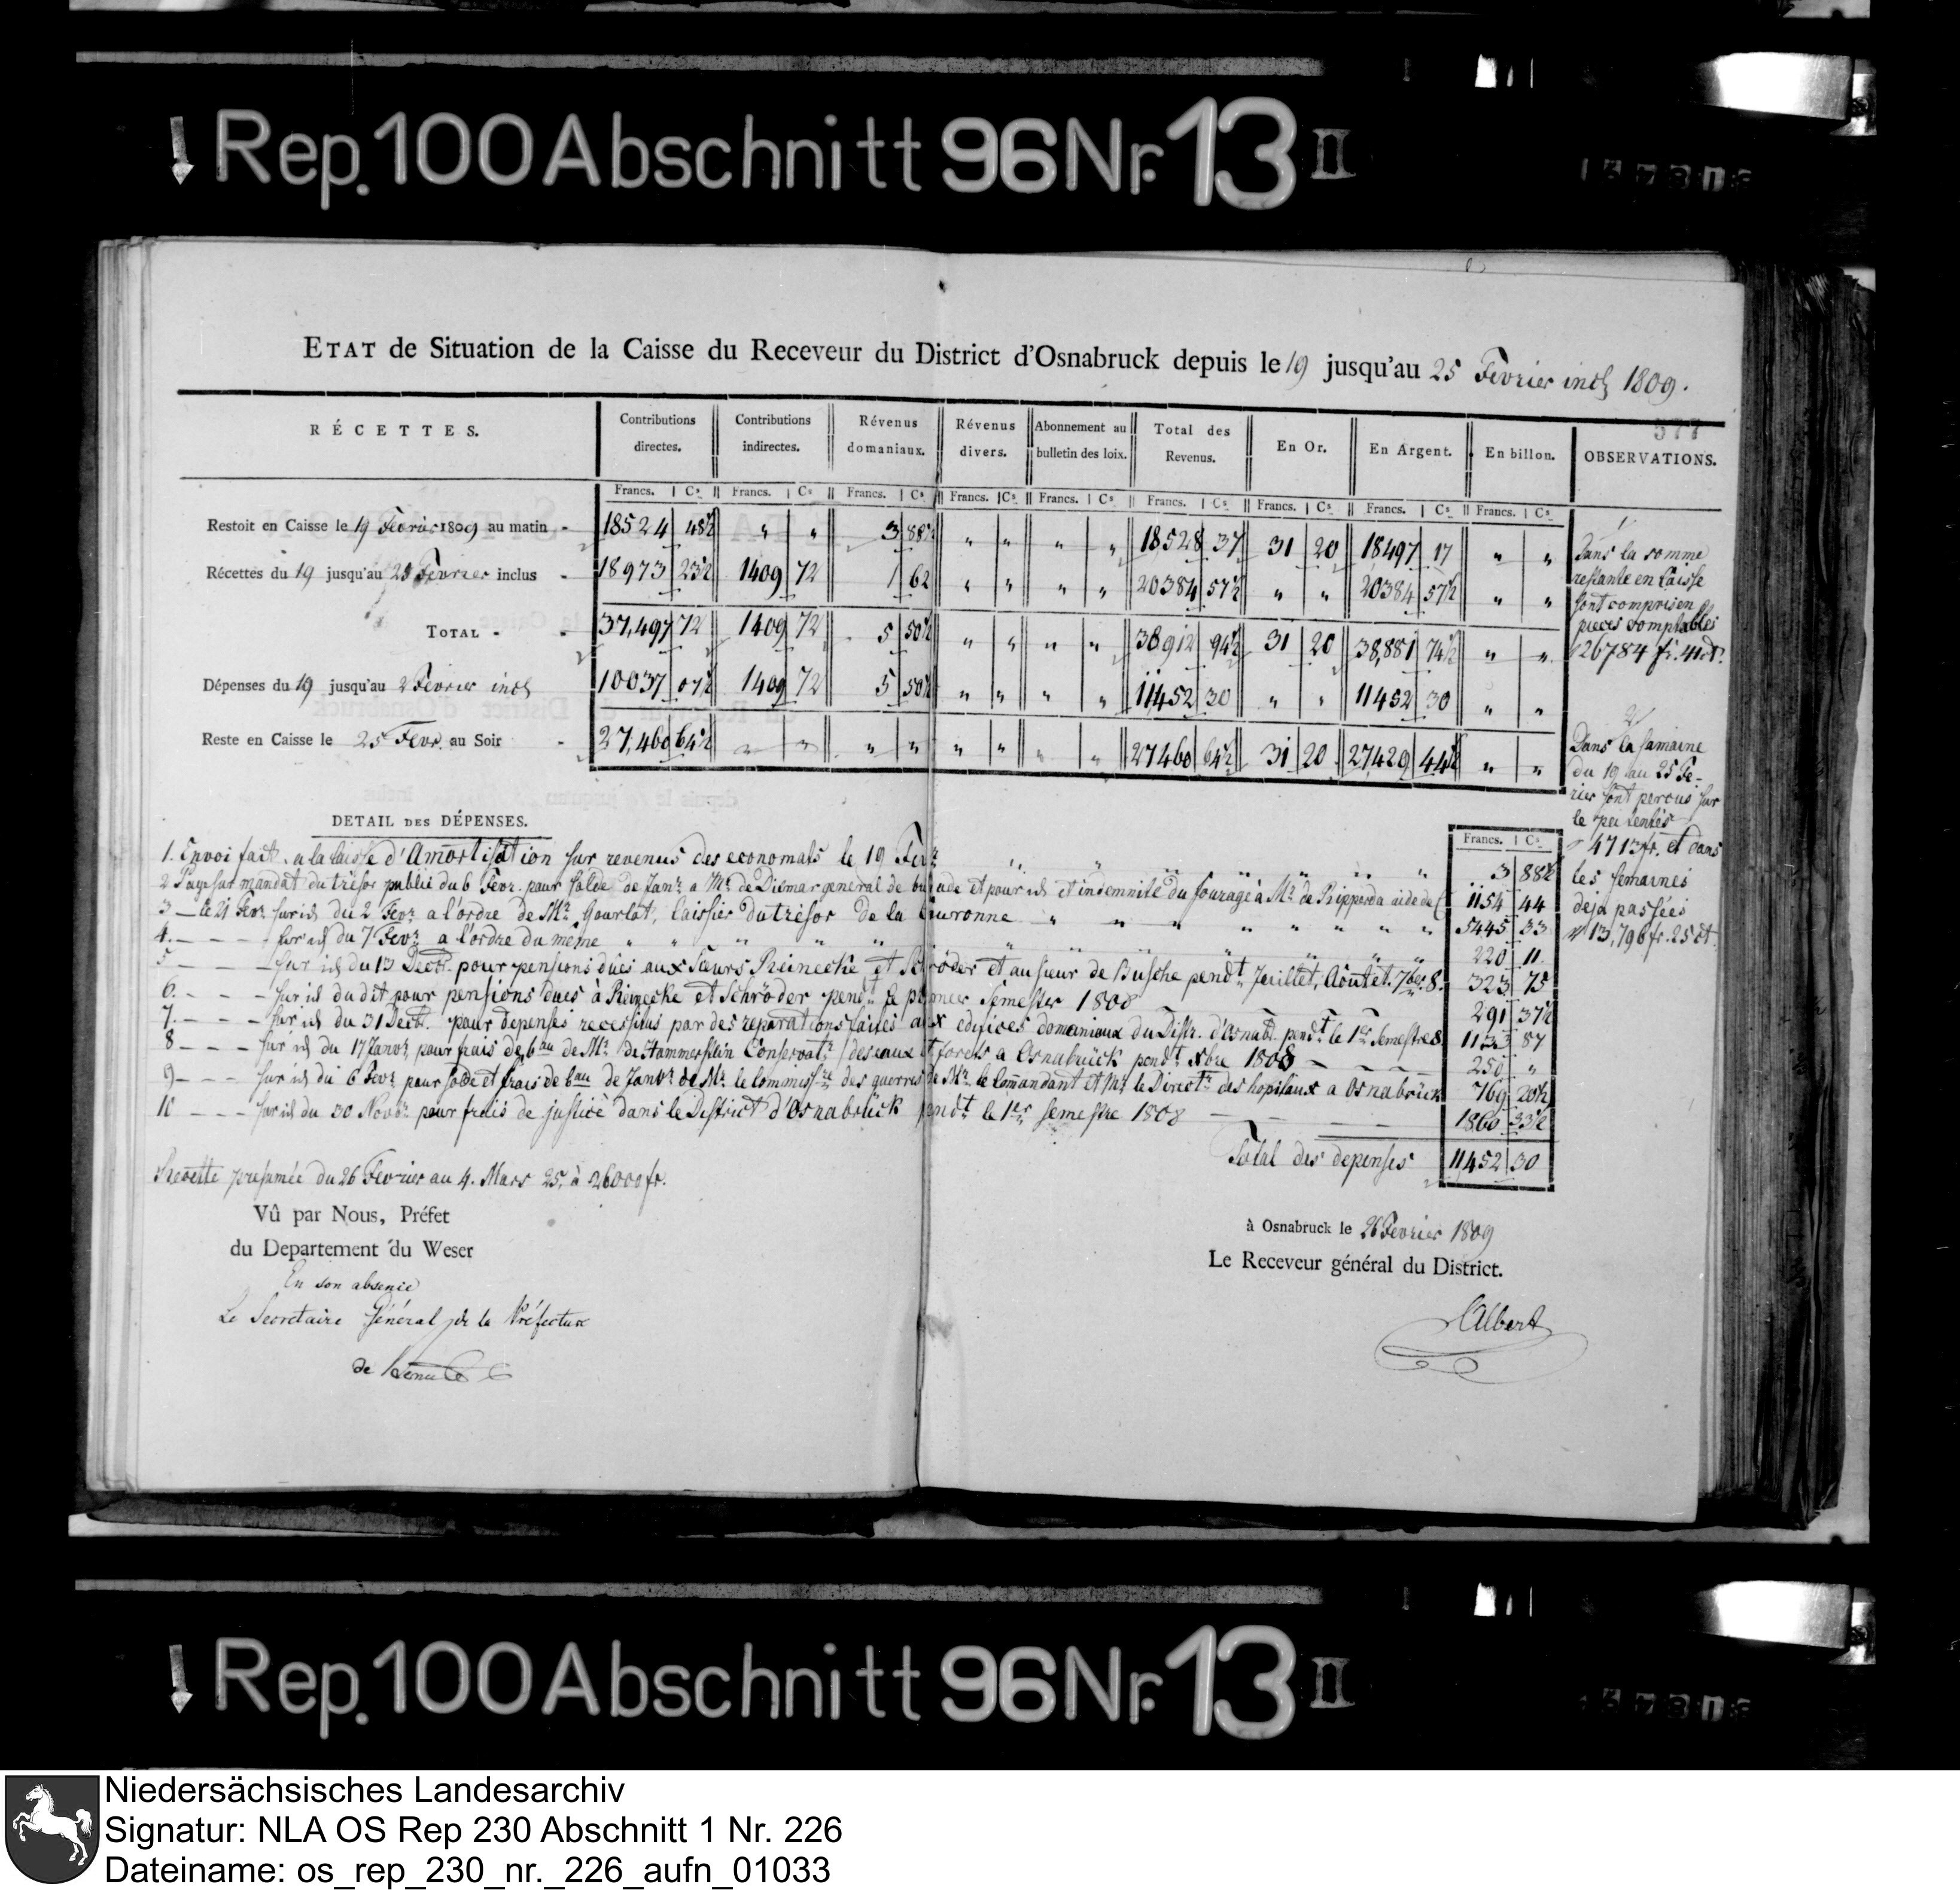 Rep. 100 Abschnitt 96 Nr. 13 II
ETAT de Situation de la Caisse du Receveur du District d'Osnabruck depuis le 19 jusqu'au 25 Fevrier incl 1809.
577
RÉCETTES. Contributions directes. Contributions indirectes. Révenus domaniaux. Révenus divers. Abonnement au bulletin des loix. Total des Revenus. En Or. En Argent. En billon. OBSERVATIONS.
Francs. Cs. Francs. Cs. Francs. Cs. Francs. Cs. Francs. Cs. Francs. Cs. Francs. Cs. Francs. Cs. Francs. Cs.
Restoit en Caisse le 19 Fevrier 1809 au matin - 18524 48½ " " 3 88½ " " " " 18528 37 31 20 18497 17 " "
Récettes du 19 jusqu'au 25 Fevrier inclus - 18973 23½ 1409 72 1 62 " " " " 20384 57½ " " 20384 57½ " "
TOTAL - - 37,497 72 1409 72 5 50½ " " " " 38912 94½ 31 20 38,881 74½ " "
Dépenses du 19 jusqu'au 2 Fevrier incl 10037 07½ 1409 72 5 50½ " " " " 11452 30 " " 11452 30 " "
Reste en Caisse le 25 Fevr. au Soir - 27,460 64½ " " " " " " " " 27460 64½ 31 20 27429 44½ " "
1/
Dans la somme
restante en Caisse
sont compris en
pieces comptables
26784 fr. 41 ct.
2/
Dans la semaine
du 19 au 25 Fe-
rier sont percus sur
le
4713 fr. et dans
les semaines
deja passées
13,796 fr. 25 ct.
DETAIL DES DÉPENSES.
Francs. Cs.
1. Envoi fait a la Caisse d'Amortisation sur revenus des economats le 19 Fevr " " " " " " 3 88½
2 Paye sur mandat du trésor public du 6 Fevr. pour solde de Janr. a Mr. de Diemar general de brigade et pour id et indemnité du fourage à Mr. de Ripperda aide de C 1154 44
3 — le 21 Fevr. sur id du 2 Fevr. a l'ordre de Mr. Gourlat, Caissier du trésor de la Couronne " " " " " " " " 5445 33
4. - - - - sur id du 7 Fevr. a l'ordre du même " " " " " " " " " " 220 11
5 - - - - sur id du 13 Decbr. pour pensions dües aux Sœurs Reinecke et Schröder et au sieur de Busche pendt. Juillet, Aoüt et 7br. 8. 323 75
6. - - - - sur id du dit pour pensions dues à Reinecke et Schröder pendt. le premier semestre 1808 291 37½
7. - - - - sur id du 31 Decbr. pour depenses par des reparations faites aux edifices domaniaux du Distr. d'Osnabr. pendt. le 1er Semestre 8 1133 87
8 - - - - sur id du 17 Janvr. pour frais de bau de Mr. de Hammerstein Conservatr. des eaux et forets a Osnabrück pendt. Xbre 1808 250 "
9 - - - sur id du 6 Fevr. pour solde et frais de bau de Janvr. de Mr. le Commissre des guerres de Mr. le Commandant et Mr. le Directr. des hopitaux a Osnabrück 769 20½
10 - - - sur id du 30 Novbr. pour frais de justice dans le District d'Osnabrück pendt. le 1er semestre 1808 1860 33½
Total des depenses 11452 30
Recette presumée du 26 Fevrier au 4. Mars 25, à 26000 fr.
Vû par Nous, Préfet
du Departement du Weser
En son absence
Le Secretaire Général de la Préfecture
à Osnabruck le 26 Fevrier 1809
Le Receveur général du District.
Albert
Rep. 100 Abschnitt 96 Nr. 13 II
Niedersächsisches Landesarchiv
Signatur: NLA OS Rep 230 Abschnitt 1 Nr. 226
Dateiname: os_rep_230_nr._226_aufn_01033